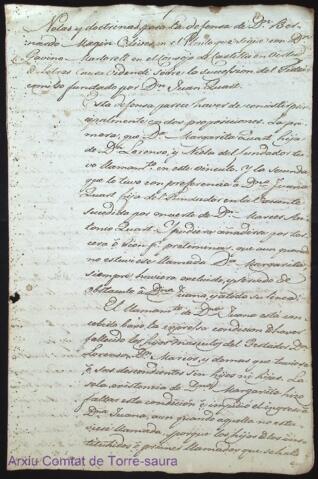 Notas y doctrinas para la defensa de Dn. Ber-
nardo Magin Olives en el Pleito que sigue con Dn.
Gavino Martorell en el Consejo de Castilla en Grado
sobre la succesion del Fidei
comiso fundado por Dn. Juan Quart.
Esta defensa parece haver de consistir prin-
cipalmente en dos proposiciones. La pri-
mera, que Da. Margarita Quart hija
de Dn. Lorenzo, y Nieta del fundador tu-
vo llamamto. en este vinculo. y la segunda
que le tuvo con preferencia a Dna. Juana
Quart hija del fundador en la vacante
sucedida por muerte de Dn. Marcos An-
tonio Quart. Y pudiera añadirse por ter-
cera ó bien pr. preliminar, que aun quando
no estuviese llamada Da. Margarita,
siempre huviera excluido, y servido de
obstaculo a Dna. Juana, y a toda su linea.
El llamamto. de Dna. Juana está con-
cebido baxo la expresa condicion de haver
fallecido los hijos masculos del Testador, Dn.
Lorenzo, Dn. Marcos, y demas que tuviese
ó sus descendientes sin hijos ni hijas. La
sola existencia de Dna. Margarita hizo
faltar esta condición é impidio el ingreso a
Dna. Juana, aun quando aquella no estu-
viese llamada, porque los hijos de los ins-
tituhidos ó primos llamados que se hallan
Arxiu Comtat de Torre-saura